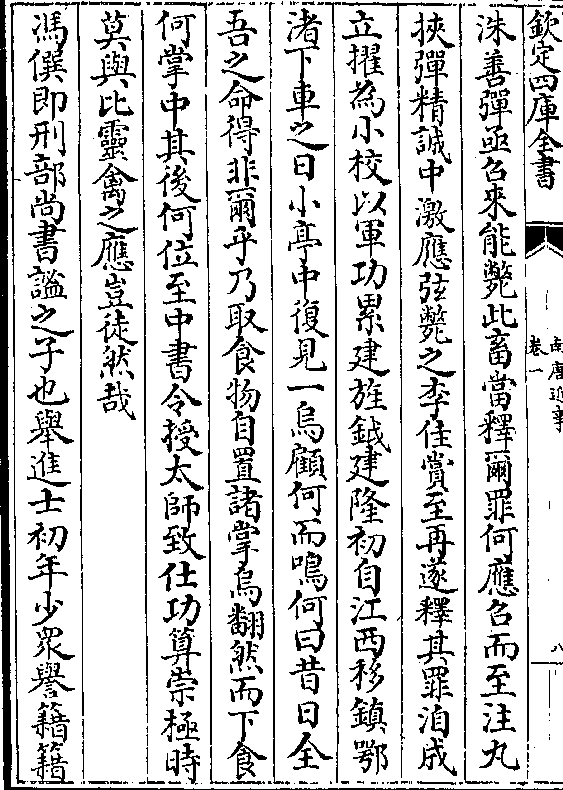 欽定四庫全書
南唐近事
卷一
八
洙善彈亟召來能斃此畜當釋爾罪何應召而至注丸
挾彈精誠中激應弦斃之李佳賞至再遂釋其罪洎成
立擢為小校以軍功累建旌鉞建隆初自江西移鎮鄂
渚下車之日小亭中復見一烏顧何而鳴何曰昔日全
吾之命得非爾乎乃取食物自置諸掌烏翻然而下食
何掌中其後何位至中書令授太師致仕功算崇極時
莫與比靈禽之應豈徒然哉
馮僎即刑部尚書謐之子也舉進士初年少衆譽籍籍